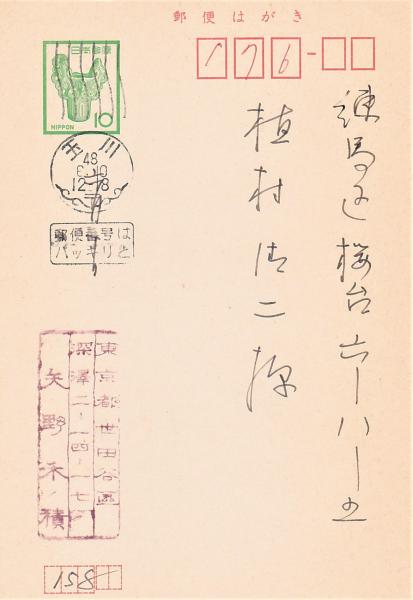 郵便はがき
176-
日本郵便
10
NIPPON
玉川
48
6.10
12-18
郵便番号は
ハッキリと
練馬区桜台六ー八ー五
植村清二様
東京都世田谷区
深澤二ー一四ー一七
矢野禾積
158